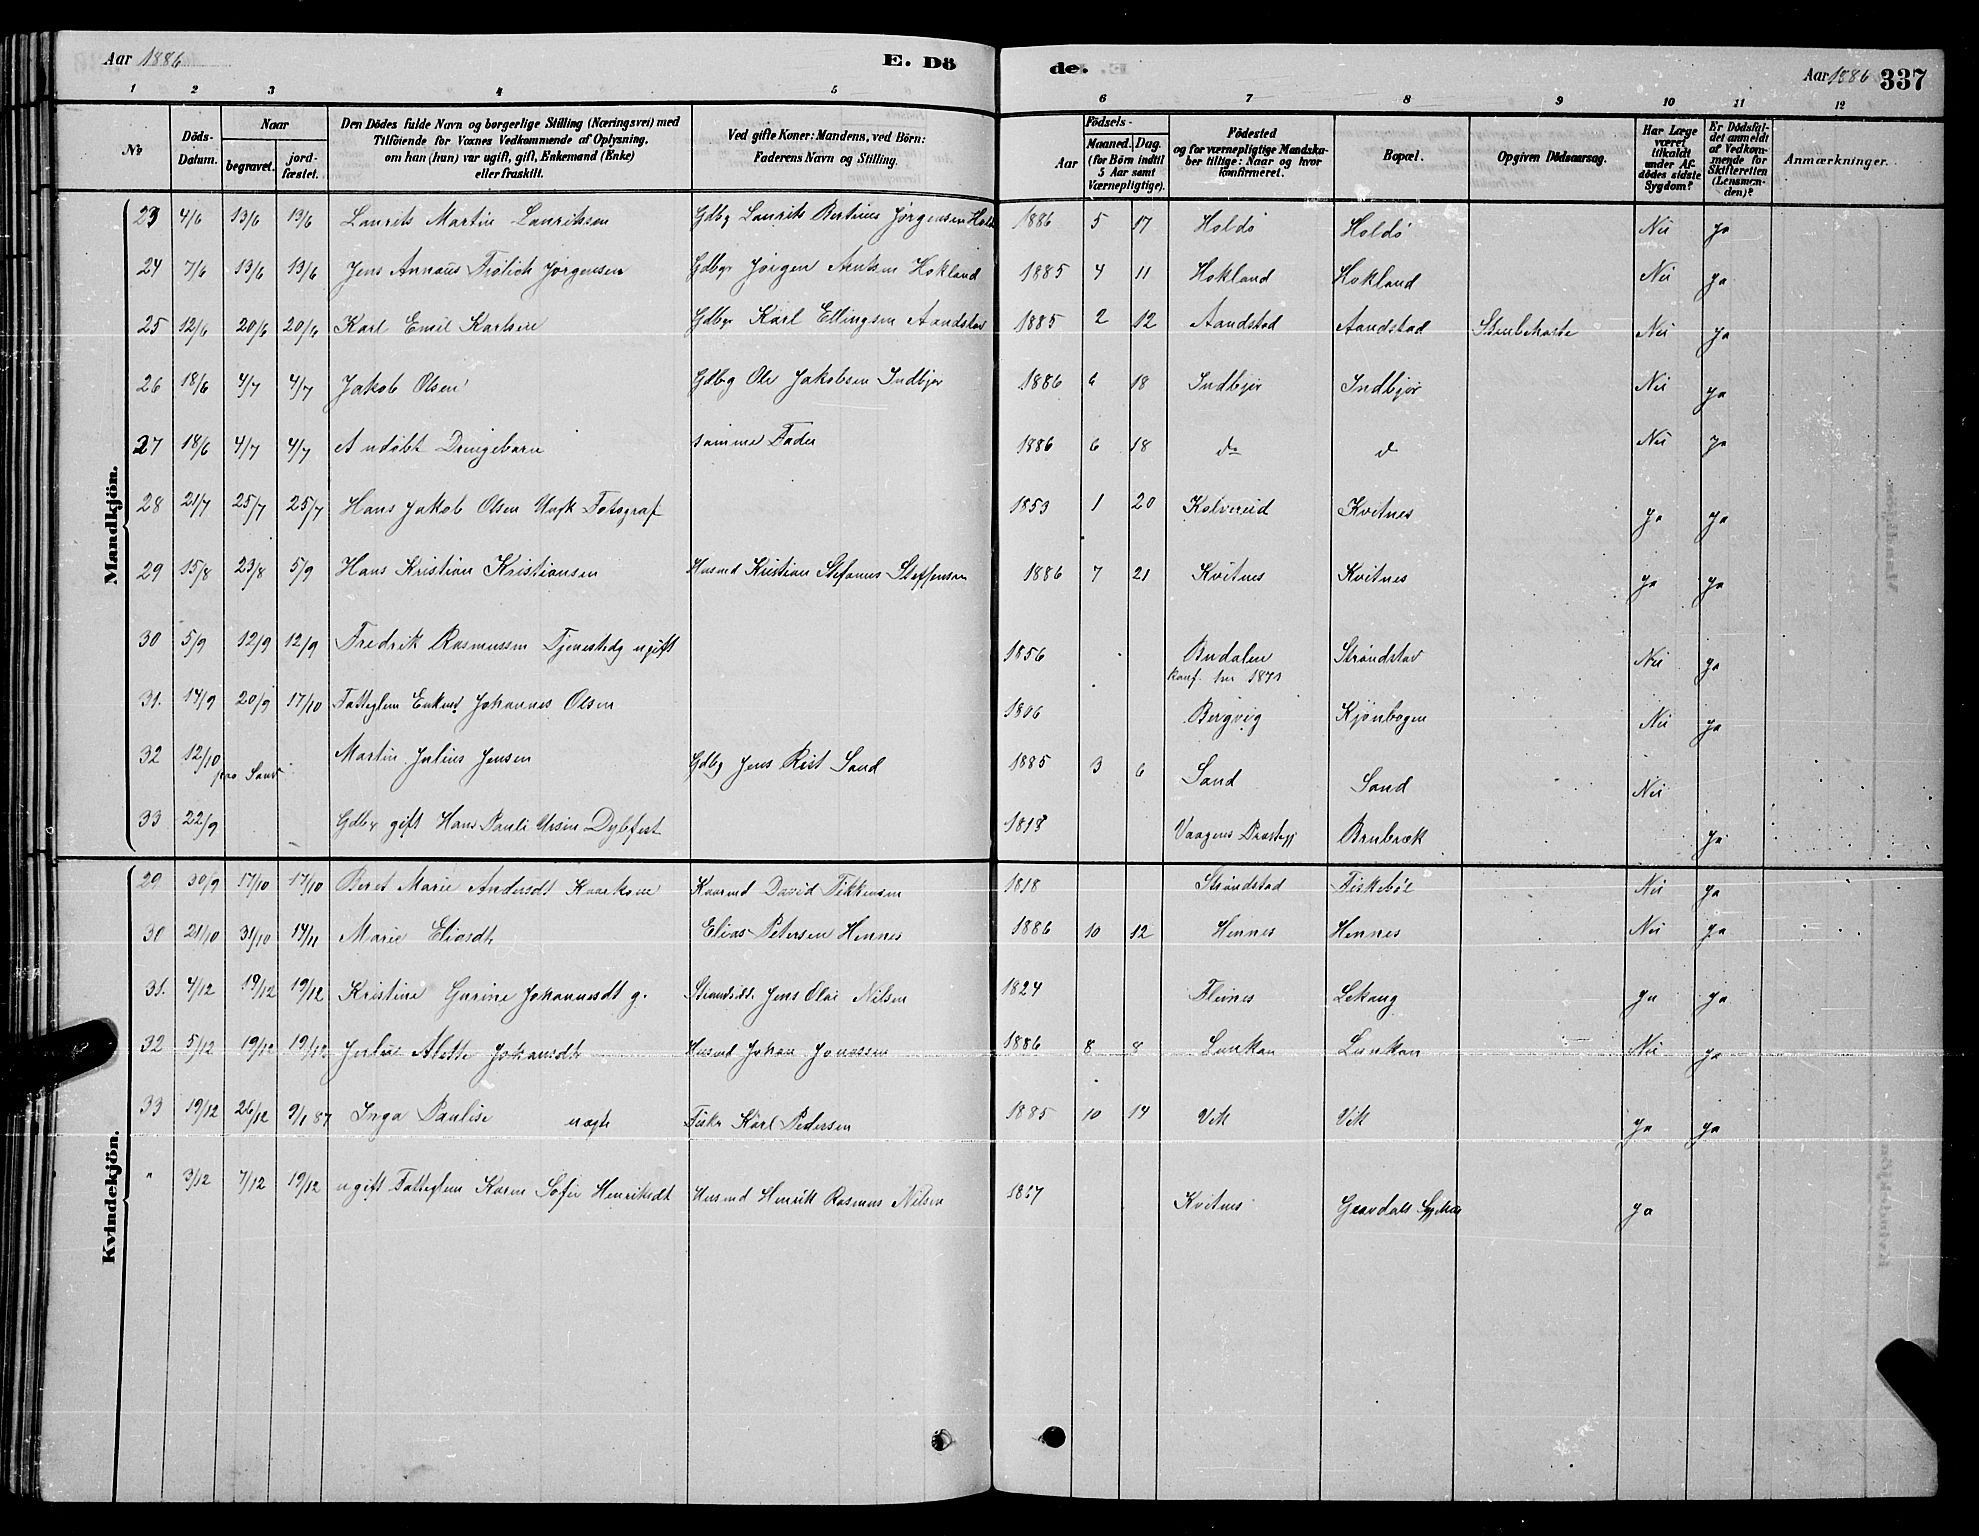 Aar 1886 E. Dö
de. Aar 1886 337
1 2 3 4 5 6 7 8 9 10 11 12
No. Döds-Datum. Naar begravet. jordfæstet. Den Dödes fulde Navn og borgerlige Stilling (Næringsvei) med Tilföiende for Voxnes Vedkommende af Oplysning, om han (hun) var ugift, gift, Enkemand (Enke) eller fraskilt. Ved gifte Koner: Mandens, ved Börn: Faderens Navn og Stilling. Födsels- Aar Maaned. Dag. (for Börn indtil 5 Aar samt Værnepligtige). Födested og for værnepligtige Mandskaber tillige: Naar og hvor konfirmeret. Bopæl. Opgiven Dödsaarsag. Har Læge været tilkaldt under Afdödes sidste Sygdom? Er Dödsfaldet anmeldt af Vedkommende for Skifteretten (Lensmanden)? Anmærkninger.
Mandkjön.
23 4/6 13/6 13/6 Laurits Martin Lauritsen Gdbg Laurits Bertinus Jørgensen Holdø 1886 5 17 Holdø Holdø Nei ja
24 7/6 13/6 13/6 Jens Annæus Frölich Jørgensen Gdbgr Jørgen Arntsen Hokland 1885 4 11 Hokland Hokland Nei ja
25 12/6 20/6 20/6 Karl Emil Karlsen Gdbgr Karl Ellingsen Aandstad 1885 2 12 Aandstad Aandstad Nei ja
26 18/6 4/7 4/7 Jakob Olsen Gdbg Ole Jakobsen Indbjør 1886 6 18 Indbjør Indbjør Nei ja
27 18/6 4/7 4/7 Et udøbt Drengebarn samme Fader 1886 6 18 do d Nei ja
28 21/7 25/7 25/7 Hans Jakob Olsen Ungk Fotograf 1853 1 20 Kolvereid Kvitnes ja ja
29 15/8 23/8 5/9 Hans Kristian Kristiansen Husmd Kristian Stefanus Steffensen 1886 7 21 Kvitnes Kvitnes ja ja
30 5/9 12/9 12/9 Fredrik Rasmussen Tjenestedg ugift 1856 Budalen Konf. her 1871 Strandstad Nei ja
31. 14/9 20/9 17/10 Fatteglem Enkemd Johannes Olsen 1806 Bergvig Kjønbogen Nei ja
32 12/10 paa Sand Martin Julius Jensen Gdbg Jens Rist Sand 1885 3 6 Sand Sand Nei
33 22/9 Gdbr gift Hans Pauli Ursin Dybfest 1818 Vaagens Prestegj Brubræk ja
Kvindekjön.
29 30/9 17/10 17/10 Beret Marie Andersdt Kaarkone Kaarmd David Fikkensen 1818 Strandstad Fiskebøl Nei ja
30 21/10 31/10 14/11 Marie Eliasdt Elias Petersen Hennes 1886 10 12 Hennes Hennes Nei ja
31. 4/12 19/12 19/12 Kristine Gurine Johannesdt g. Strandsidt. Jens Olai Nilsen 1824 Fleines Lekang ja ja
32 5/12 19/12 19/12 Juline Alette Johansdt Husmd Johan Jonassen 1886 8 8 Lunkan Lunkan Nei ja
33 19/12 26/12 9/1 87 Inga Pauline uægte Fisker Karl Pedersen 1885 10 14 Vik Vik ja ja
" 3/12 7/12 19/12 ugift Fatteglem Karen Sofie Henriksdt Husmd Henrik Rasmus Nilsen 1867 Kvitnes Gravdals Sygehus ja